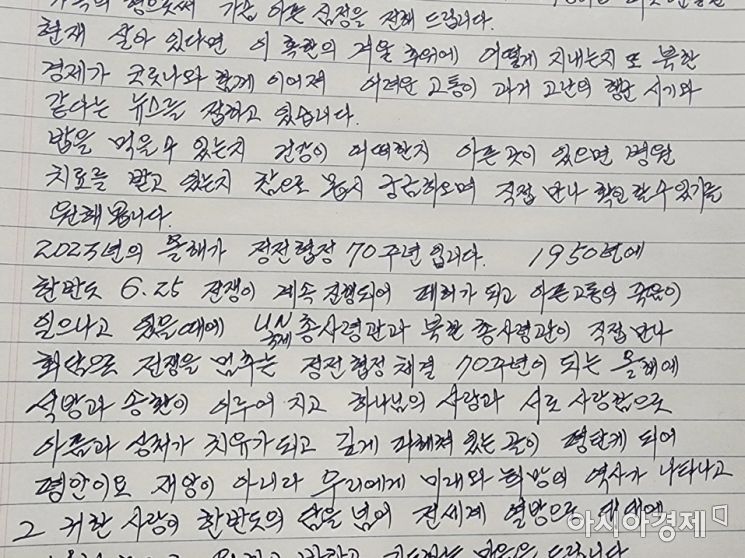 가족의 형으로써 가슴 아픈 심정을 전해 드립니다.
현재 살아 있다면 이 혹한의 겨울 추위에 어떻게 지내는지 또 북한
경제가 코로나와 함께 이어져 어려운 고통이 과거 고난의 행군 시기와
같다는 뉴스를 접하고 있습니다.
밥을 먹을수 있는지 건강이 어떠한지 아픈 곳이 있으면 병원
치료를 받고 있는지 참으로 몹시 궁금하오며 직접 만나 확인 할수 있기를
원해 봅니다.
2023년의 올해가 정전협정 70주년 입니다. 1950년에
한반도 6.25 전쟁이 계속 진행되어 폐허가 되고 아픈 고통의 죽음이
일으나고 있을때에 UN국제 총사령관과 북한 총사령관이 직접 만나
회담으로 전쟁을 멈추는 정전협정 체결 70주년이 되는 올해에
석방과 송환이 이루어 지고 하나님의 사랑과 서로 사랑함으로
아픔과 상처가 치유가 되고 깊게 파헤쳐 있는 골이 평탄케 되어
평안이요 재앙이 아니라 우리에게 미래와 희망의 역사가 나타나고
그 귀한 사랑이 한반도의 담을 넘어 전세계 열방으로
아시아경제